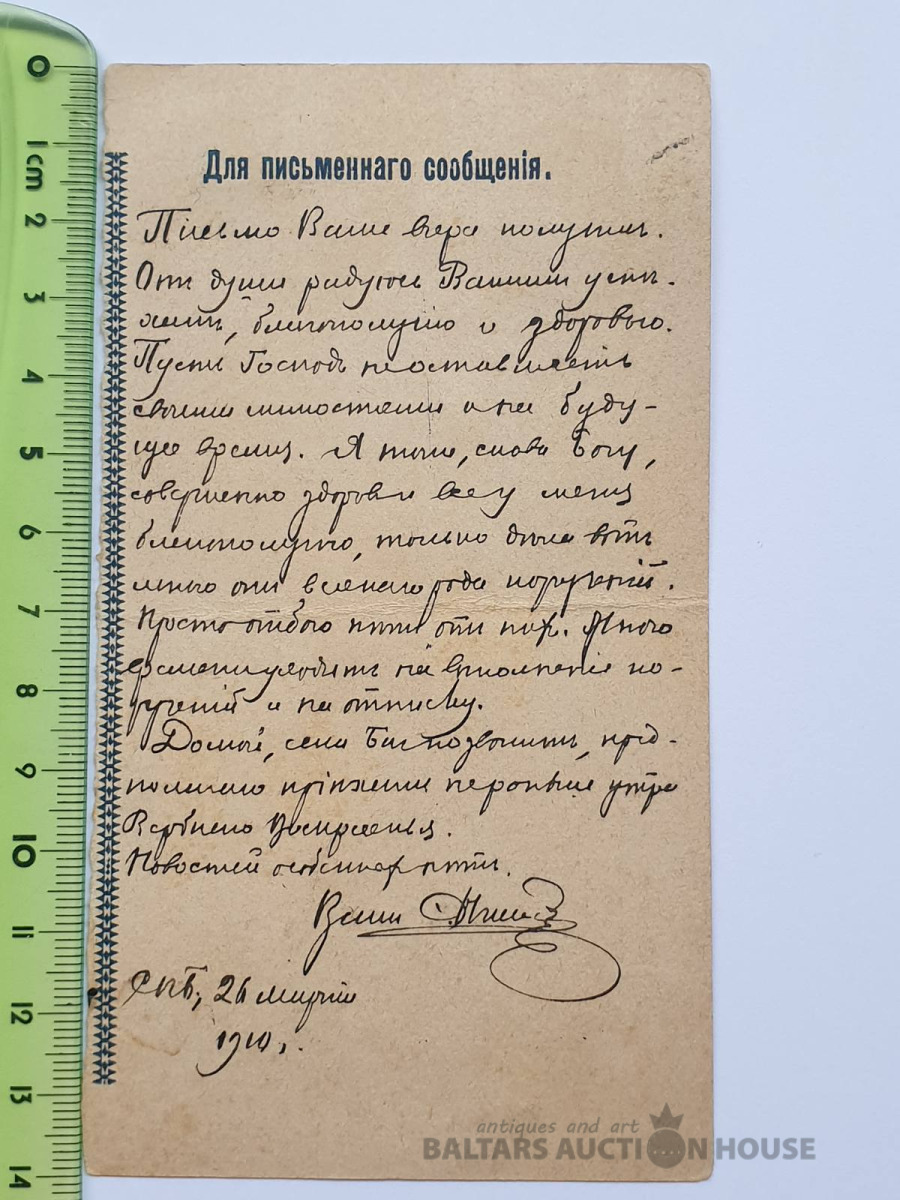 0
1cm
2
3
4
5
6
7
8
9
10
11
12
13
14
Для письменнаго сообщенія.
Письмо Ваше вчера получилъ.
Отъ души радуюсь Вашимъ успѣ-
хамъ, благополучію и здоровью.
Пусть Господь не оставляетъ
своими милостями и на буду-
щее время. Я тоже, слава Богу,
совершенно здоровъ и все у меня
благополучно, только дѣла
много отъ всякаго рода порученій.
Просто отбою нѣтъ отъ нихъ. Много
времени уходитъ на выполненіе по-
рученій и на отписку.
Домой, если Богъ позволитъ, пред-
полагаю пріѣхать утро
Вербнаго Воскресенья.
Новостей особенныхъ нѣтъ.
Вашъ
СПБ, 26 марта
1910 г.
antiques and art
BALTARS AUCTION HOUSE